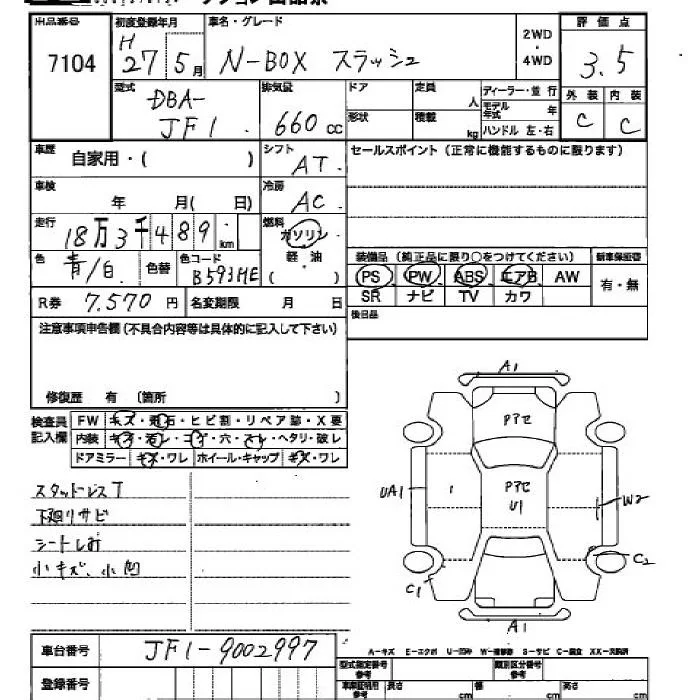 出品番号 初度登録年月 車名・グレード 2WD ・ 4WD 評価点
7104 H 27 5月 N-BOX スラッシュ 3.5
型式 排気量 ドア 定員 人 ディーラー・並 行 外装 内装
DBA- JF1 660 cc 形状 積載 kg モデル年式 年 ハンドル 左・右 C C
車歴 自家用・( ) シフト AT セールスポイント(正常に機能するものに限ります)
車検 年 月( 日) 冷房 AC
走行 18万3千489 km 燃料 ガソリン 軽油 ( )
装備品(純正品に限り○をつけてください) 新車保証書
色 青/白 色替 色コード B593ME
PS PW ABS エアB AW 有・無
R券 7,570円 名変期限 月 日 SR ナビ TV カワ
後日品
注意事項申告欄(不具合内容等は具体的に記入して下さい)
修復歴 有 (箇所 )
検査員記入欄 FW キズ・飛石・ヒビ割・リペア跡・X要
内装 キズ・・コゲ・穴・スレ・ヘタリ・破レ
ドアミラー キズ・ワレ ホイール・キャップ キズ・ワレ
スタッドレスT
下廻りサビ
シートしみ
小キズ、小凹
A1
Pアセ
UA1 Pアセ U1 W2
C1 C2
A1
車台番号 JF1-9002997
A-キズ E-エクボ U-凹み W-補修跡 S-サビ C-腐食 XX-交換済
型式指定番号参考 類別区分番号参考
登録番号 車庫証明用参考 長さ cm 幅 cm 高さ cm